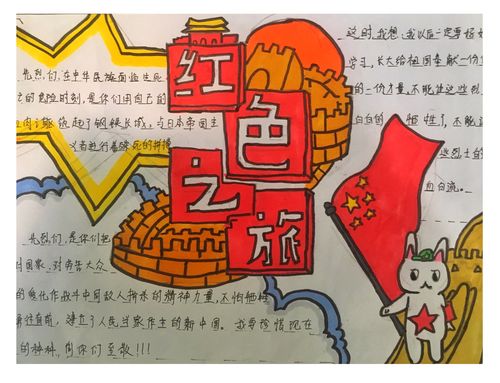 红
色
之
旅
先烈们,在中华民族面临生死
亡的危险时刻,是你们用自己的
血肉之躯筑起了钢铁长城,与日本帝国主
义者进行着殊死的拼搏
先烈们,是你们把
对国家、对劳苦大众
的
化作战斗中同敌人拼杀的精神力量,不怕牺牲
勇往直前,建立了人民当家作主的新中国。我要珍惜现在
的种种,向你们至敬!!!
这时,我想:我以后一定要好好
学习,长大给祖国奉献一份
的一份力量,不能让这些烈
白白的牺牲了,不能
些烈士的
血白流。